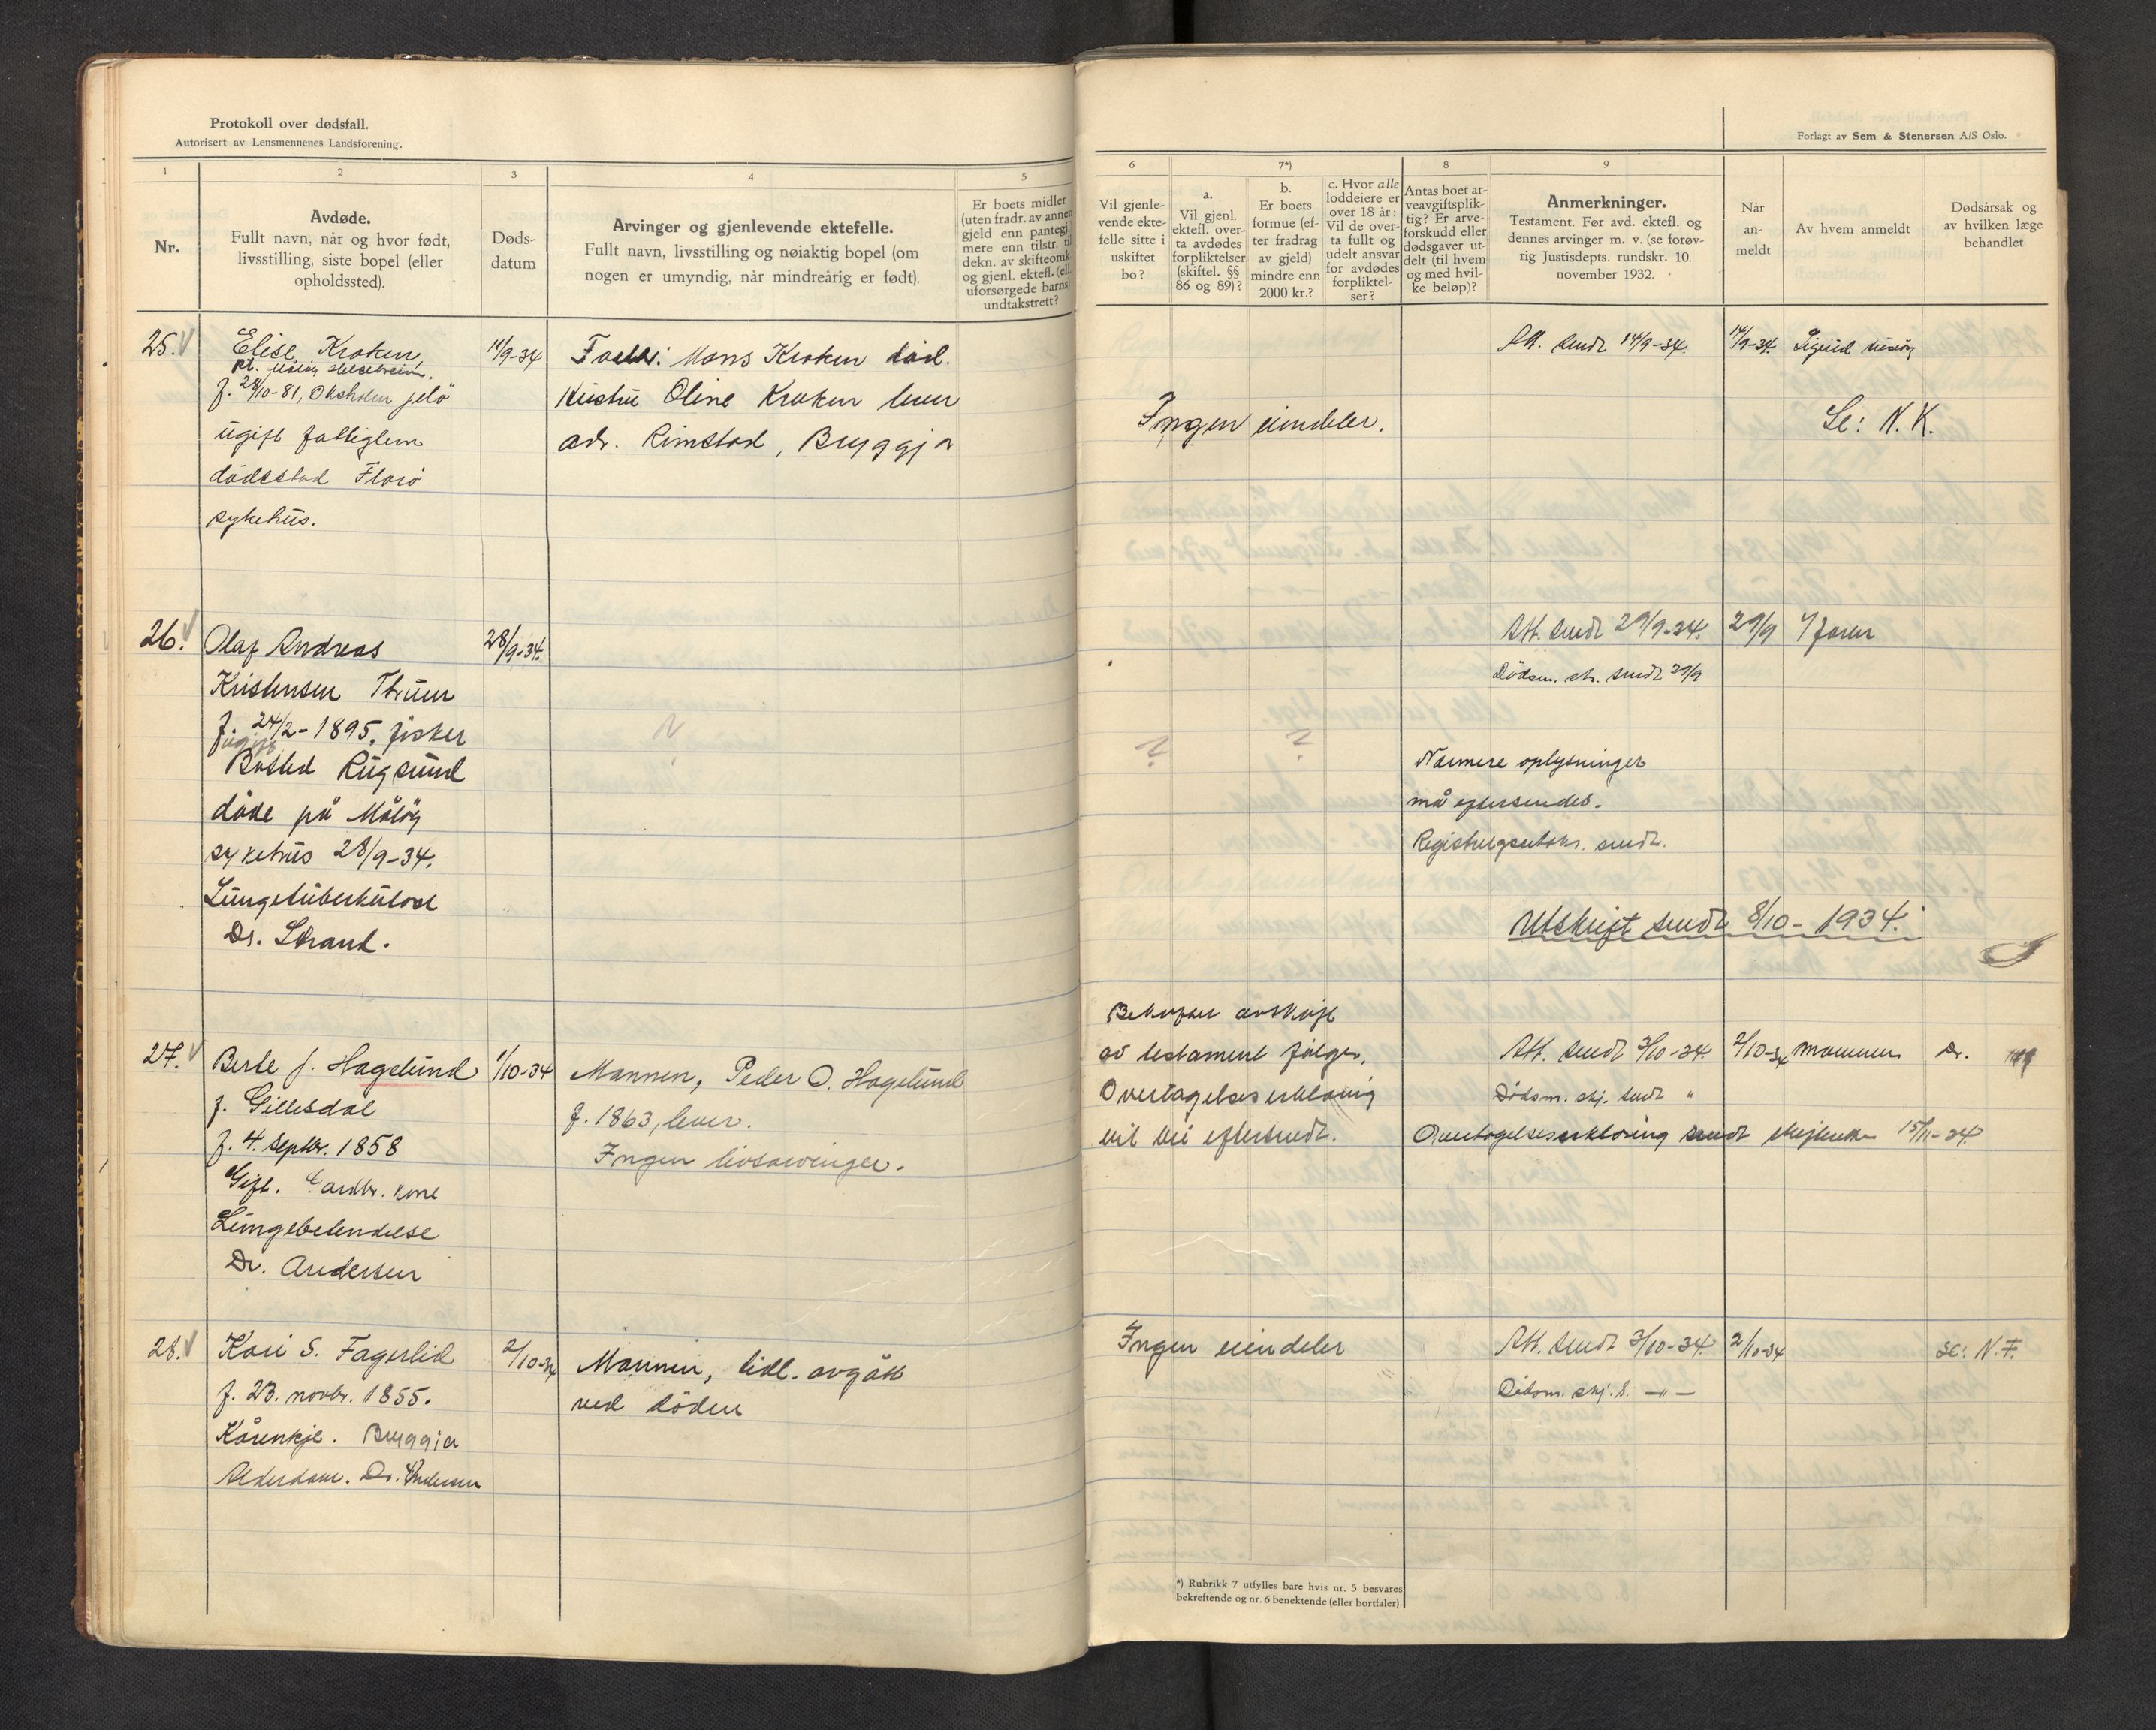 Protokoll over dødsfall.
Autorisert av Lensmennenes Landsforening.
1
2
3
4
5
Nr.
Avdøde.
Fullt navn, når og hvor født,
livsstilling, siste bopel (eller
opholdssted).
Døds-
datum
Arvinger og gjenlevende ektefelle.
Fullt navn, livsstilling og nøiaktig bopel (om
nogen er umyndig, når mindreårig er født).
Er boets midler
(uten fradr. av annen
gjeld enn pantegj.
mere enn tilstr. til
dekn. av skifteomk.
og gjenl. ektefl. (ell.
uforsørgede barns)
undtakstrett?
25.
Elise Kroken
pt.
f. 28/10-81, Oksholm
ugift fattiglem
dødsstad Florø
sykehus.
11/9-34
Mons Kroken død.
Oline Kroken lever
adr. Rimstad, Bryggja
26.
Olaf Andreas
Kristensen
f. 24/2-1895, fisker
ugift
Bosted Rugsund
døde på Måløy
sykehus 28/9-34.
Lungetuberkulose
Dr. Strand.
28/9-34.
?
27.
Berte J. Hagelund
f. Gillesdal
f. 4. septbr. 1858
Gift. Gardbr. kone
Lungebetendelse
Dr. Andersen
1/10-34
Mannen, Peder O. Hagelund
f. 1863, lever.
Ingen livsarvinger.
28.
Kari S. Fagerlid
f. 23. novbr. 1855.
Bryggja
Alderdom. Dr. Andersen
2/10-34
Mannen, tidl. avgått
ved døden
Forlagt av Sem & Stenersen A/S Oslo.
6
7*)
8
9
Vil gjenle-
vende ekte-
felle sitte i
uskiftet
bo?
a.
Vil gjenl.
ektefl. over-
ta avdødes
forpliktelser
(skiftel. §§
86 og 89)?
b.
Er boets
formue (ef-
ter fradrag
av gjeld)
mindre enn
2000 kr.?
c. Hvor alle
loddeiere er
over 18 år:
Vil de over-
ta fullt og
udelt ansvar
for avdødes
forpliktel-
ser?
Antas boet ar-
veavgiftsplik-
tig? Er arve-
forskudd eller
dødsgaver ut-
delt (til hvem
og med hvil-
ke beløp)?
Anmerkninger.
Testament. Før avd. ektefl. og
dennes arvinger m. v. (se forøv-
rig Justisdepts. rundskr. 10.
november 1932.
Når
an-
meldt
Av hvem anmeldt
Dødsårsak og
av hvilken læge
behandlet
Ingen eiendeler.
Att. sendt 14/9-34.
14/9-34.
Se: N. K.
Att. sendt 29/9-34.
29/9
Dødsm. sk. sendt 29/9
?
?
Nærmere oplysninger
må eftersendes.
sendt.
Utskrift sendt 8/10-1934.
Bekreftet avskrift
av testament følger.
Overtagelseserklæring
vil bli eftersendt.
Att. sendt 3/10-34.
2/10-34
Mannen
Dr.
Dødsm. skj. sendt "
Overtagelseserklæring sendt skifteretten 15/11-34
Ingen eiendeler
Att. sendt 3/10-34.
2/10-34
Se: N. F.
Dødsm. skj. s. -"-
*) Rubrikk 7 utfylles bare hvis nr. 5 besvares
bekreftende og nr. 6 benektende (eller bortfaler)